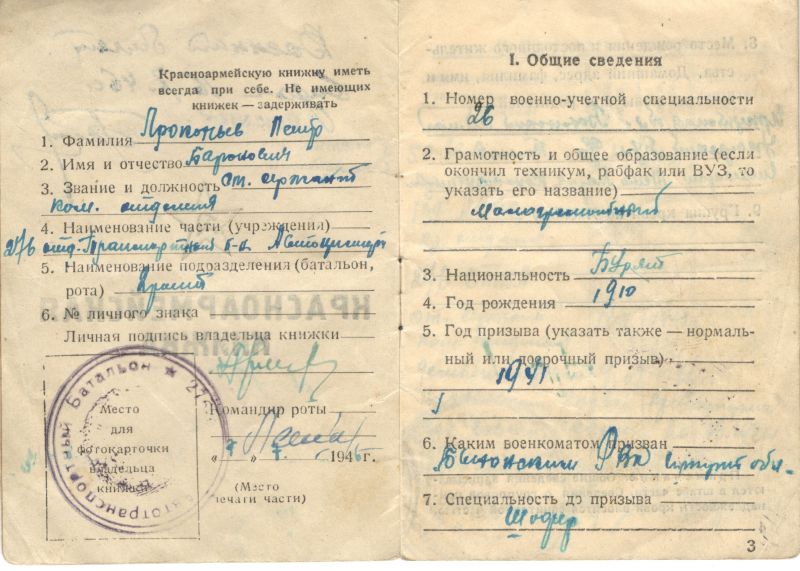 Красноармейскую книжку иметь
всегда при себе. Не имеющих
книжек — задерживать
1. Фамилия Прокопьев Петр
2. Имя и отчество Баронович
3. Звание и должность Ст. сержант
ком. отделения
4. Наименование части (учреждения)
276 отд. Транспортный б-н
5. Наименование подразделения (батальон,
рота)
6. № личного знака
Личная подпись владельца книжки
Командир роты
194 г.
Место
для
фотокарточки
владельца
книжки
(Место
печати части)
Автотранспортный Батальон
I. Общие сведения
1. Номер военно-учетной специальности
26
2. Грамотность и общее образование (если
окончил техникум, рабфак или ВУЗ, то
указать его название)
Малограмотный
3. Национальность Бурят
4. Год рождения 1910
5. Год призыва (указать также — нормаль-
ный или досрочный призыв)
1941
6. Каким военкоматом призван
РВК
7. Специальность до призыва
Шофер
3